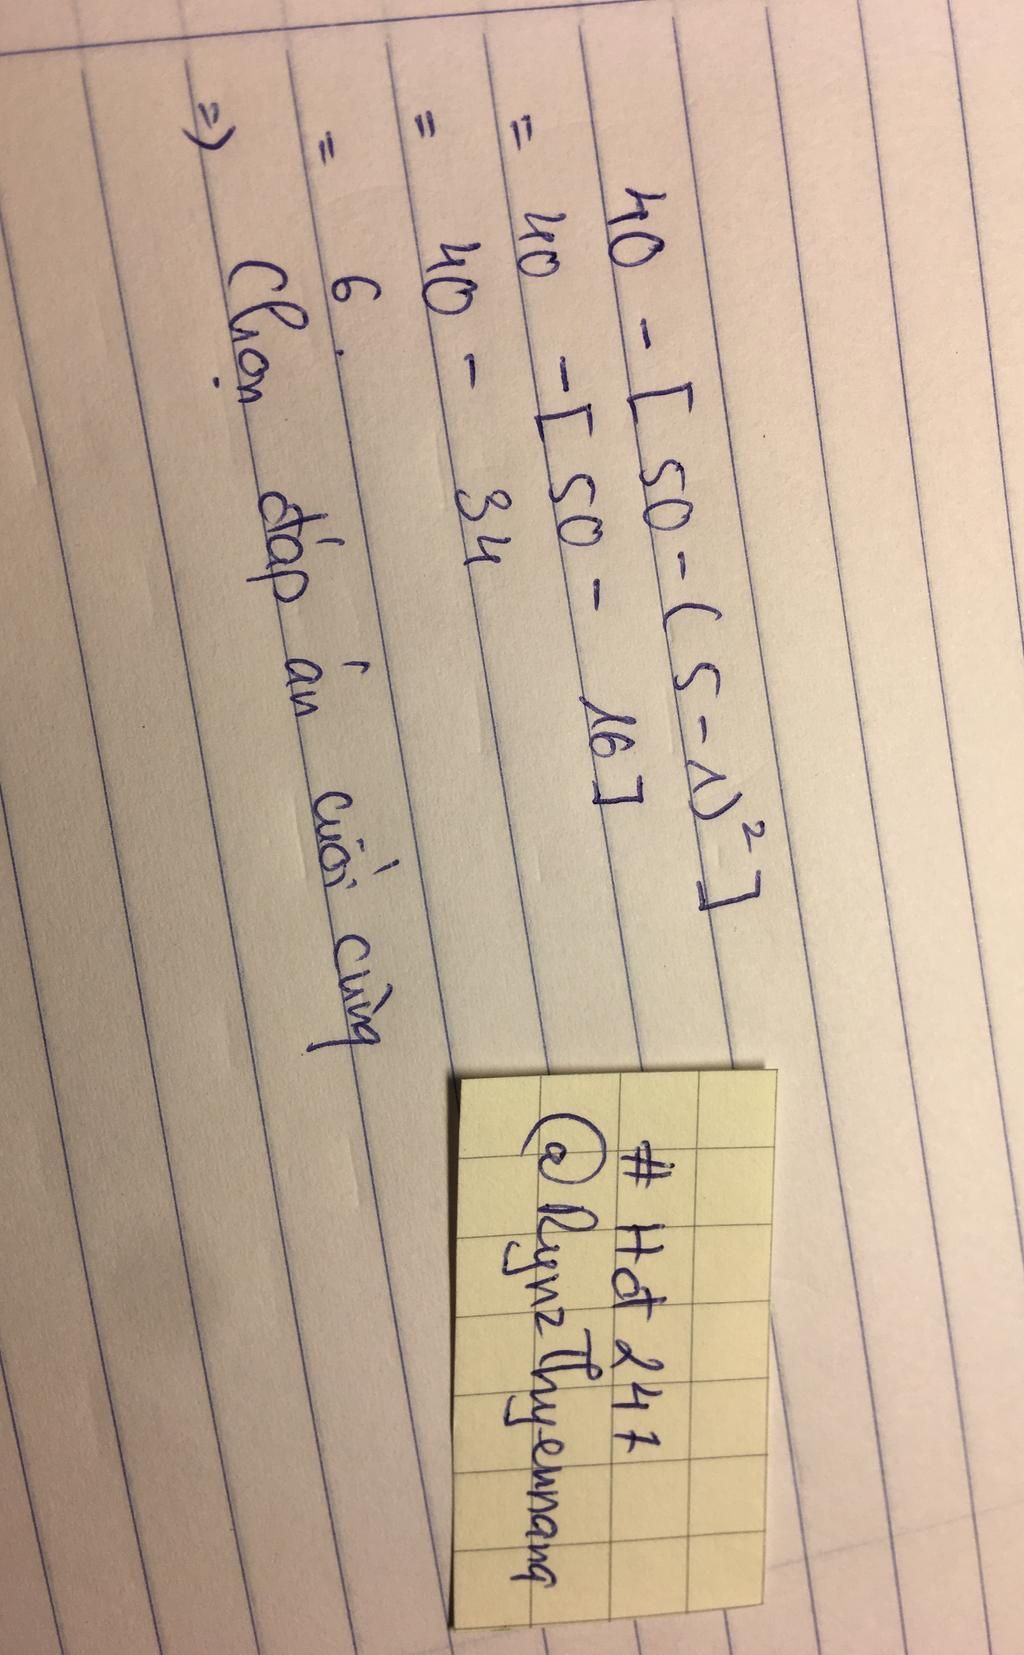 40 - [ 50 - ( 5 - 1)² ]
= 40 - [ 50 - 16 ]
= 40 - 34
= 6.
=) Chọn đáp án cuối cùng
# Hđ 247
@RynzThyemnang